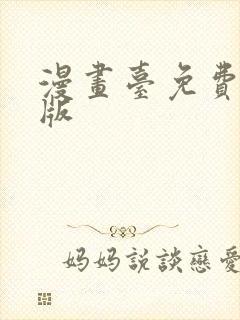 漫畫臺免費
版
妈妈説談戀愛